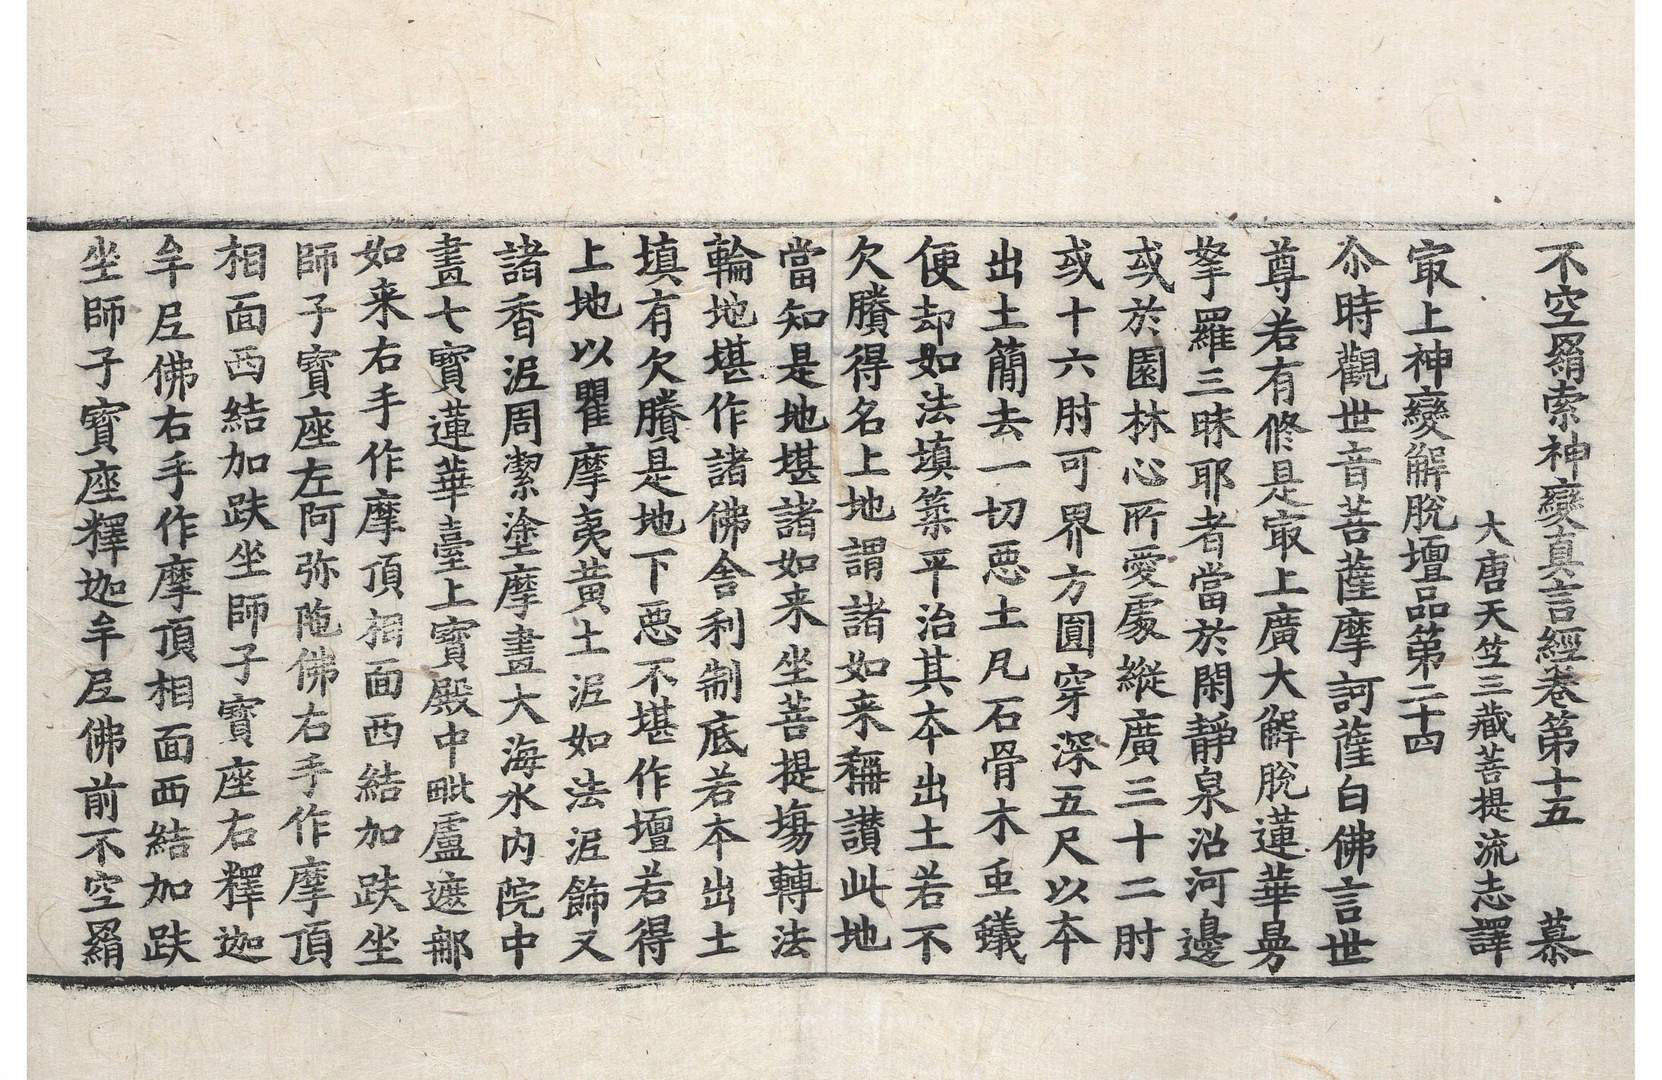 不空羂索神變真言經卷第十五 慕
大唐天竺三藏菩提流志譯
㝡上神變解脫壇品第二十四
尒時觀世音菩薩摩訶薩白佛言世
尊若有修是㝡上廣大解脫蓮華曼
拏羅三昧耶者當於閑靜泉沼河邊
或於園林心所愛處縱廣三十二肘
或十六肘可界方圓穿深五尺以本
出土簡去一切惡土瓦石骨木虫蟻
便却如法填築平治其本出土若不
欠賸得名上地謂諸如来稱讃此地
當知是地堪諸如来坐菩提場轉法
輪地堪作諸佛舎利制底若本出土
填有欠賸是地下惡不堪作壇若得
上地以瞿摩夷黃土泥如法泥飾又
諸香泥周潔塗摩畫大海水內院中
畫七寶蓮華臺上寶殿中毗盧遮那
如来右手作摩頂相面西結加趺坐
師子寶座左阿弥陁佛右手作摩頂
相面西結加趺坐師子寶座右釋迦
牟尼佛右手作摩頂相面西結加趺
坐師子寶座釋迦牟尼佛前不空羂